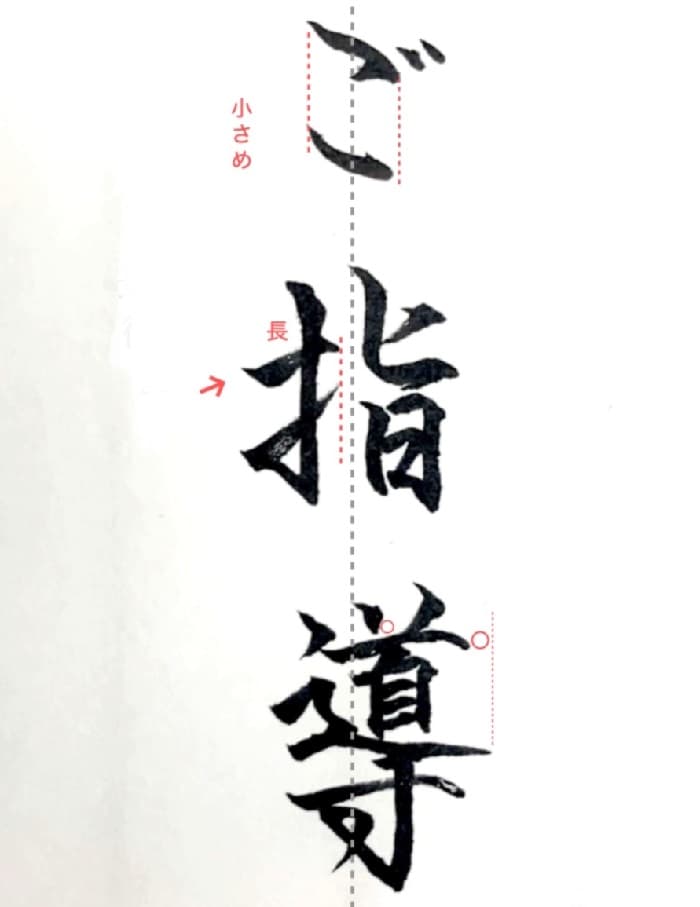 ご指導
小さめ
長